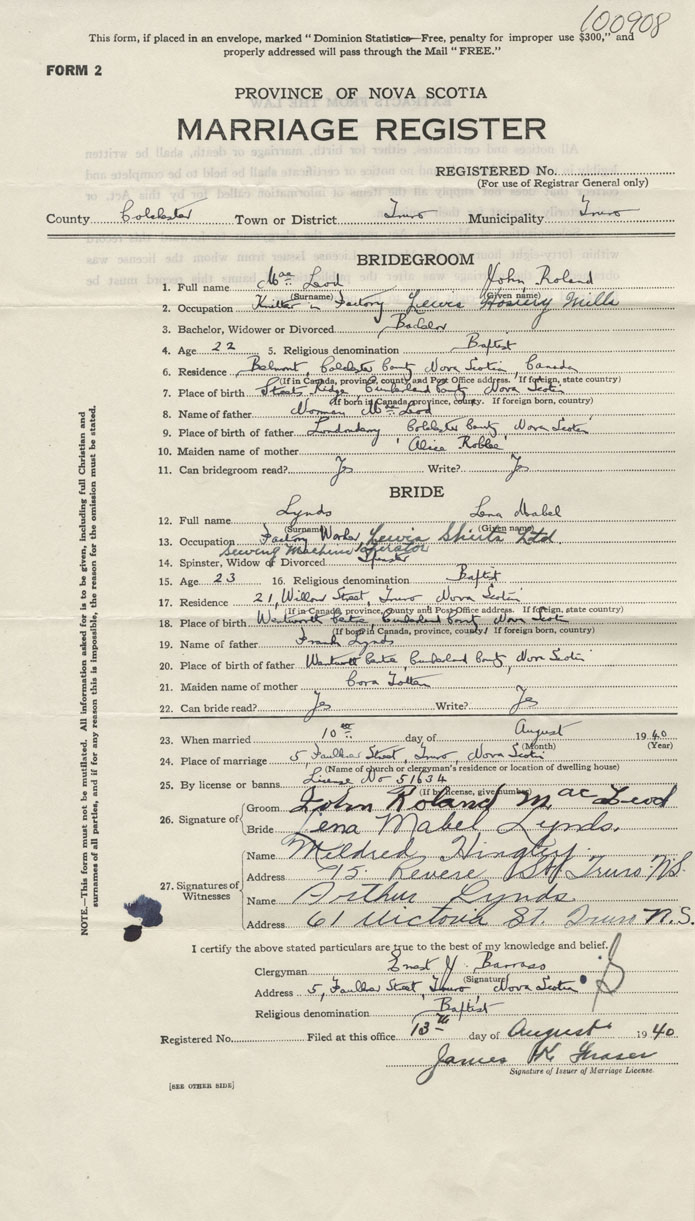 100908
This form, if placed in an envelope, marked "Dominion Statistics—Free, penalty for improper use $300," and
properly addressed will pass through the Mail "FREE."
FORM 2
PROVINCE OF NOVA SCOTIA
MARRIAGE REGISTER
REGISTERED No.
(For use of Registrar General only)
County Colchester Town or District Truro Municipality Truro
BRIDEGROOM
1. Full name MacLeod John Roland
(Surname) (Given name)
2. Occupation Knitter in Factory Lewis Hosiery Mills
3. Bachelor, Widower or Divorced Bachelor
4. Age 22 5. Religious denomination Baptist
6. Residence Belmont, Colchester County Nova Scotia, Canada
(If in Canada, province, county and Post Office address. If foreign, state country)
7. Place of birth Streets Ridge Cumberland County Nova Scotia
(If born in Canada, province, county. If foreign born, country)
8. Name of father Norman MacLeod
9. Place of birth of father Londonderry Colchester County Nova Scotia
10. Maiden name of mother Alice
11. Can bridegroom read? Yes Write? Yes
BRIDE
12. Full name Lynds Lena Mabel
(Surname) (Given name)
13. Occupation Factory Worker Lewis Shirts Ltd.
Sewing Machine Operator
14. Spinster, Widow or Divorced Spinster
15. Age 23 16. Religious denomination Baptist
17. Residence 21, Willow Street, Truro Nova Scotia
(If in Canada, province, county and Post Office address. If foreign, state country)
18. Place of birth Wentworth Centre, Cumberland County Nova Scotia
(If born in Canada, province, county. If foreign born, country)
19. Name of father Frank Lynds
20. Place of father Wentworth Centre, Cumberland County, Nova Scotia
21. Maiden name of mother Cora Totten
22. Can bride read? Yes Write? Yes
23. When married 10th day of August 1940
(Month) (Year)
24. Place of marriage 5, Faulkner Street, Truro, Nova Scotia
(Name of church or clergyman's residence or location of dwelling house)
25. By license or banns License No 51634
(If by license, give number)
26. Signature of Groom John Roland MacLeod
Bride Lena Mabel Lynds.
27. Signatures of Witnesses Name Mildred
Address 75 Revere St Truro N.S.
Name Arthur Lynds
Address 61 Victoria St. Truro N.S.
I certify the above stated particulars are true to the best of my knowledge and belief.
Clergyman Ernest J. Barrass
(Signature)
Address 5, Faulkner Street, Truro Nova Scotia
Religious denomination Baptist
Registered No. Filed at this office 13th day of August 1940
James K Fraser
Signature of Issuer of Marriage License.
[SEE OTHER SIDE]
NOTE.—This form must not be mutilated. All information asked for is to be given, including full Christian and
surnames of all parties, and if for any reason this is impossible, the reason for the omission must be stated.